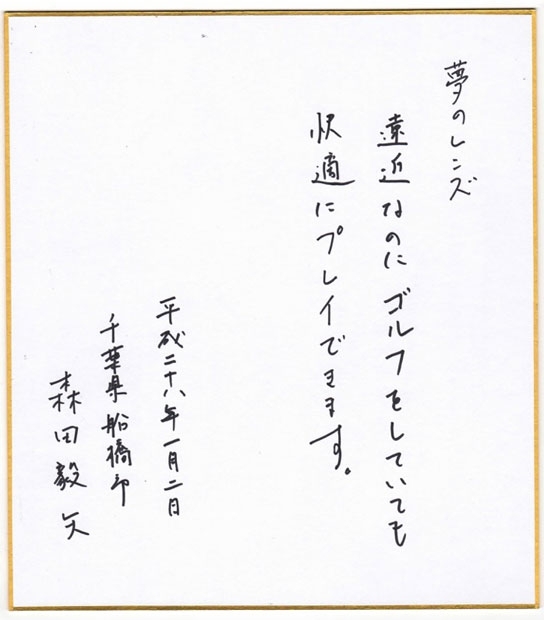 夢のレンズ
遠近なのにゴルフをしていても
快適にプレイできます。
平成二十八年一月二日
千葉県船橋市
森田毅矢